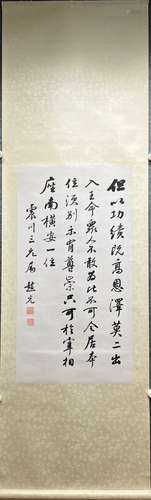 但以功績既高恩澤莫二出
入王命眾人不敢為比不可令居本
位須別示有尊崇只可於宰相
座南橫安一位
震川三兄屬 趙元